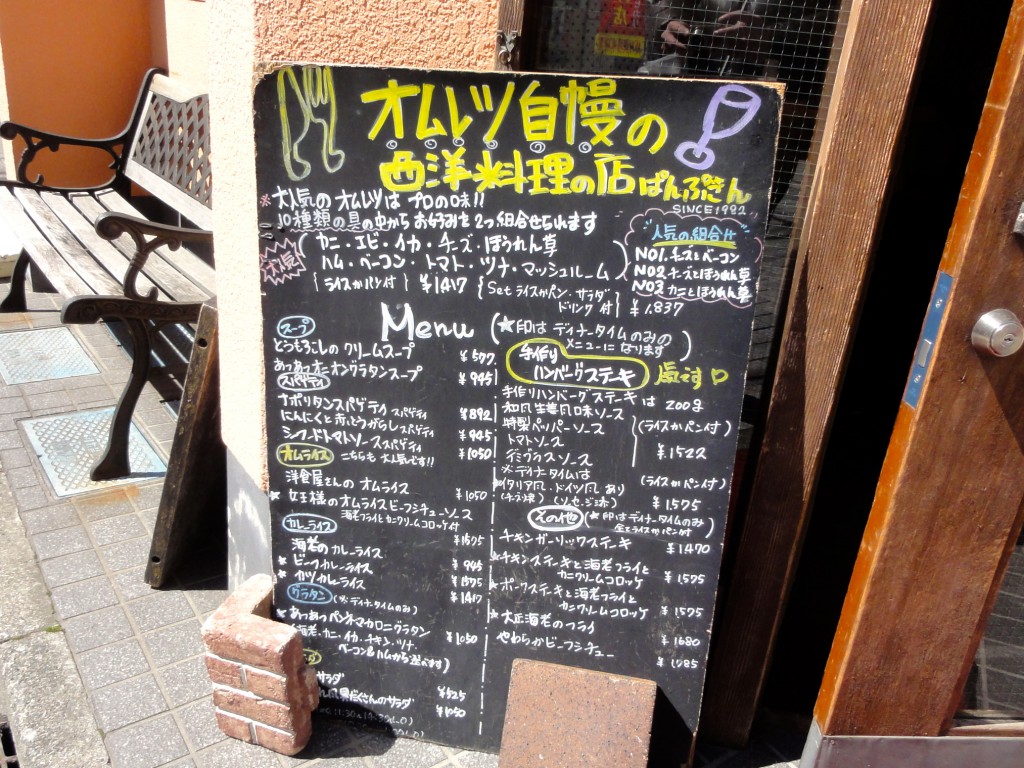 オムレツ自慢の
西洋料理の店 ぱんぷきん
SINCE1992
※大人気のオムレツは プロの味!!
10種類の具の中から お好みを2つ組合せられます
大人気
カニ・エビ・イカ・チーズ・ほうれん草
ハム・ベーコン・トマト・ツナ・マッシュルーム
(ライスかパン付) ¥1417
Set ライスかパン、サラダ
ドリンク付 ¥1,837
人気の組合せ
NO1. チーズとベーコン
NO2 チーズとほうれん草
NO3 カニとほうれん草
Menu (★印は ディナータイムのみの
メニューに なります)
スープ
とうもろこしの クリームスープ ¥577
あつあつオニオングラタンスープ ¥945
スパゲティ
ナポリタンスパゲティ スパゲティ ¥892
にんにくと赤とうがらし スパゲティ ¥945
シーフードトマトソース スパゲティ ¥1050
オムライス こちらも 大人気です!!
洋食屋さんの オムライス ¥1050
★女王様のオムライスビーフシチューソース
海老フライとカニクリームコロッケ付 ¥1575
カレーライス
海老のカレーライス
★ビーフカレーライス ¥945
★カツカレーライス ¥1575
グラタン (※ディナータイムのみ) ¥1417
★あつあつペンネマカロニグラタン
(海老、カニ、イカ、チキン、ツナ、 ¥1050
ベーコン&ハムから選べます)
サラダ ¥525
だくさんのサラダ ¥1050
手作り
ハンバーグステーキ
手作りハンバーグステーキは 200g
和風生姜風味ソース
特製ペッパーソース (ライスかパン付)
トマトソース ¥1522
デミグラスソース
※ディナータイムは
イタリア風、ドイツ風 あり (ライスかパン付)
¥1575
その他 (★印はディナータイムのみ
全てライスかパン付)
チキンガーリックステーキ ¥1470
★チキンステーキと海老フライと
カニクリームコロッケ ¥1575
★ポークステーキと海老フライと
カニクリームコロッケ ¥1575
★大正海老のフライ ¥1680
やわらかビーフシチュー